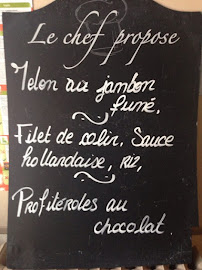 Le chef propose
Melon au jambon
fumé,
Filet de colin, Sauce
hollandaise, Riz,
Profiteroles au
chocolat